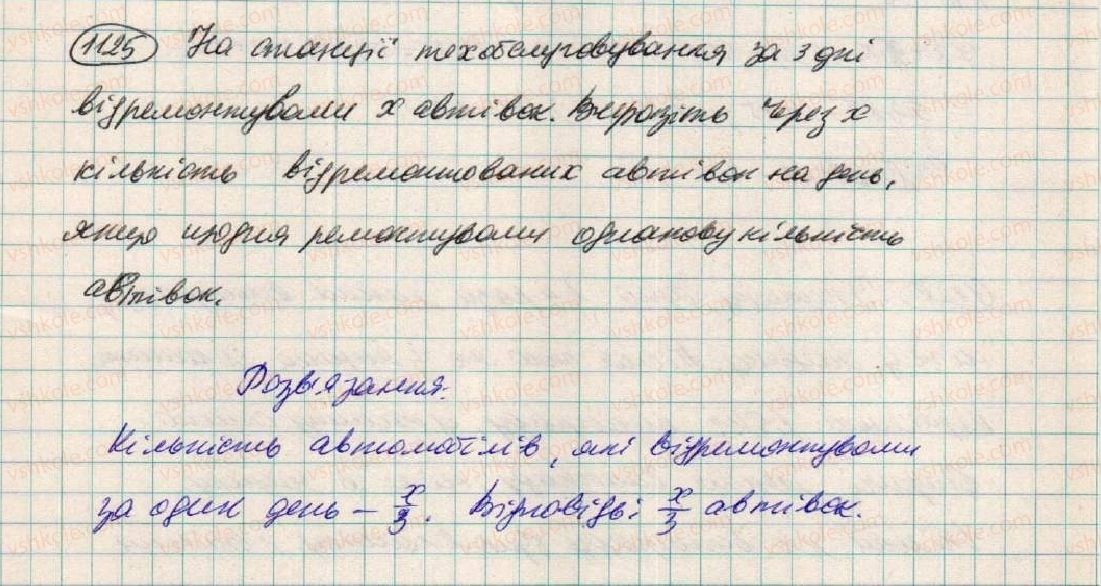 1125 На станції техобслуговування за 3 дні
відремонтували x автівок. Виразіть через x
кількість відремонтованих автівок на день,
якщо щодня ремонтували однакову кількість
автівок.
Розв'язання.
Кількість автомобілів, які відремонтували
за один день – x/3. Відповідь: x/3 автівок.